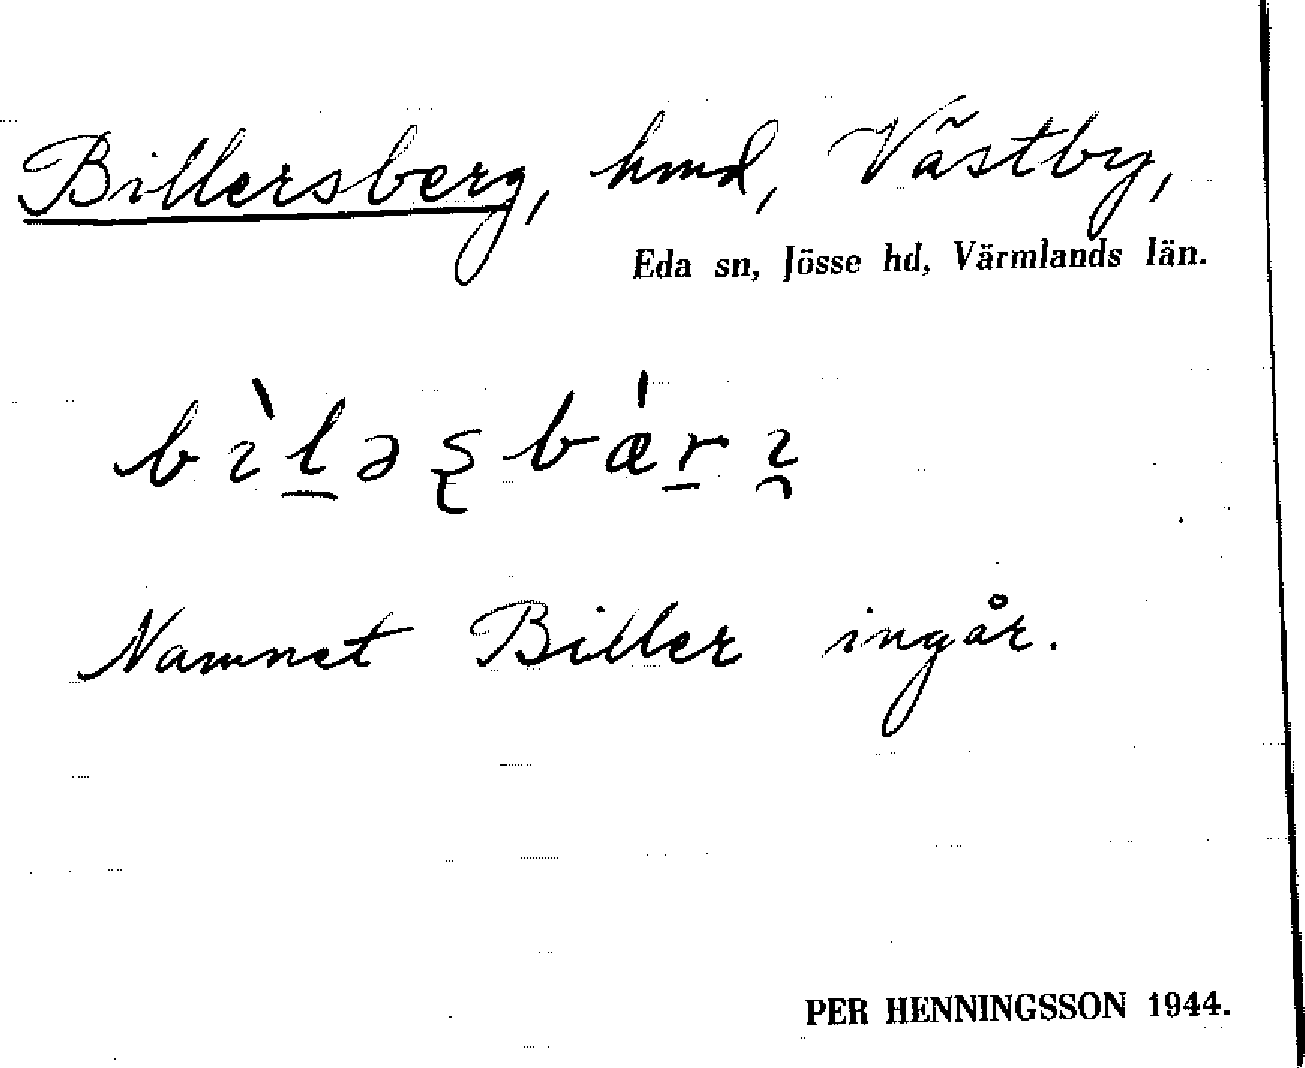 Billersberg, hmd, Västby,
Eda sn, Jösse hd, Värmlands län.
bɪ̀l̠əʂbǽr̠ɪ̯
Namnet Biller ingår.
PER HENNINGSSON 1944.